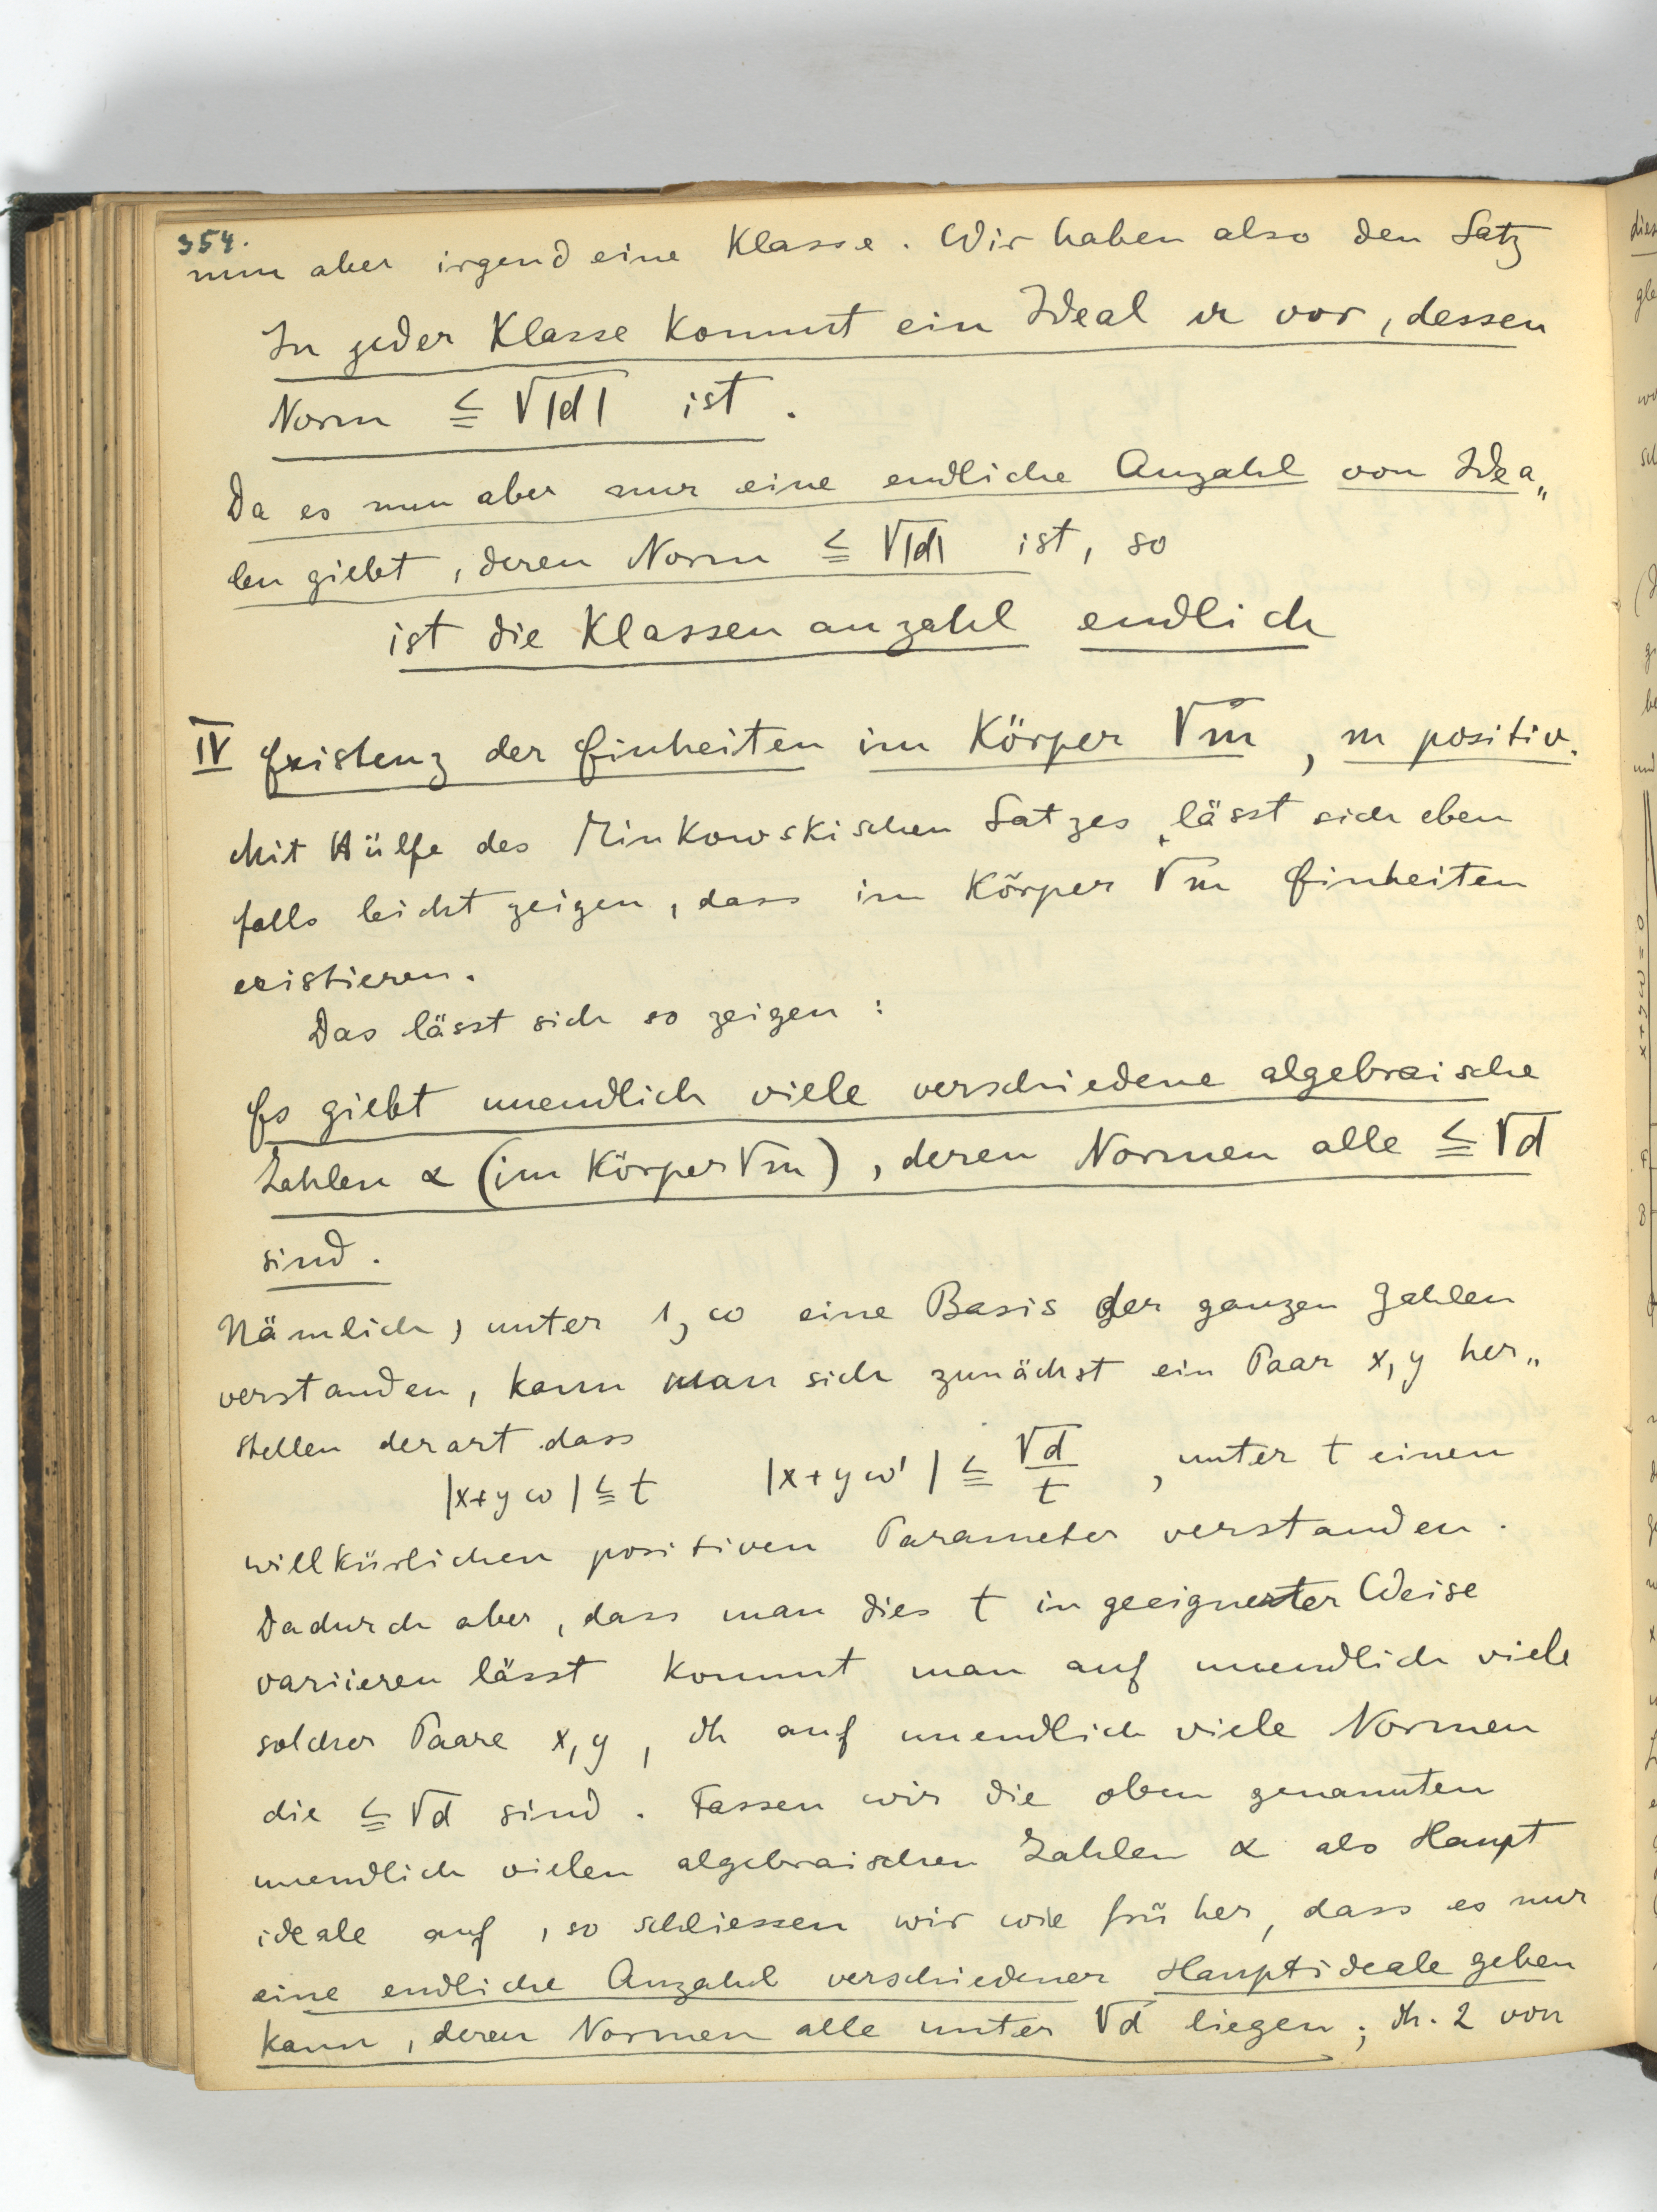 354.
nun aber irgend eine Klasse. Wir haben also den Satz
In jeder Klasse kommt ein Ideal 𝔞 vor, dessen
Norm ≦ √|d| ist.
Da es nun aber nur eine endliche Anzahl von Idea„
len giebt, deren Norm ≦ √|d| ist, so
ist die Klassenanzahl endlich
IV Existenz der Einheiten im Körper √m, m positiv.
Mit Hülfe des Minkowskischen Satzes lässt sich eben
falls leicht zeigen, dass im Körper √m Einheiten
existieren.
Das lässt sich so zeigen:
Es giebt unendlich viele verschiedene algebraische
Zahlen α (im Körper √m), deren Normen alle ≦ √d
sind.
Nämlich, unter 1, ω eine Basis der ganzen Zahlen
verstanden, kann man sich zunächst ein Paar x, y her„
stellen derart dass
|x+yω| ≦ t |x+yω'| ≦ √d/t , unter t einen
willkürlichen positiven Parameter verstanden.
Dadurch aber, dass man dies t in geeigneter Weise
variieren lässt kommt man auf unendlich viele
solcher Paare x, y, dh auf unendlich viele Normen
die ≦ √d sind. Fassen wir die oben genannten
unendlich vielen algebraischen Zahlen α als Haupt
ideale auf, so schliessen wir wie früher, dass es nur
eine endliche Anzahl verschiedener Hauptideale geben
kann, deren Normen alle unter √d liegen; dh. 2 von